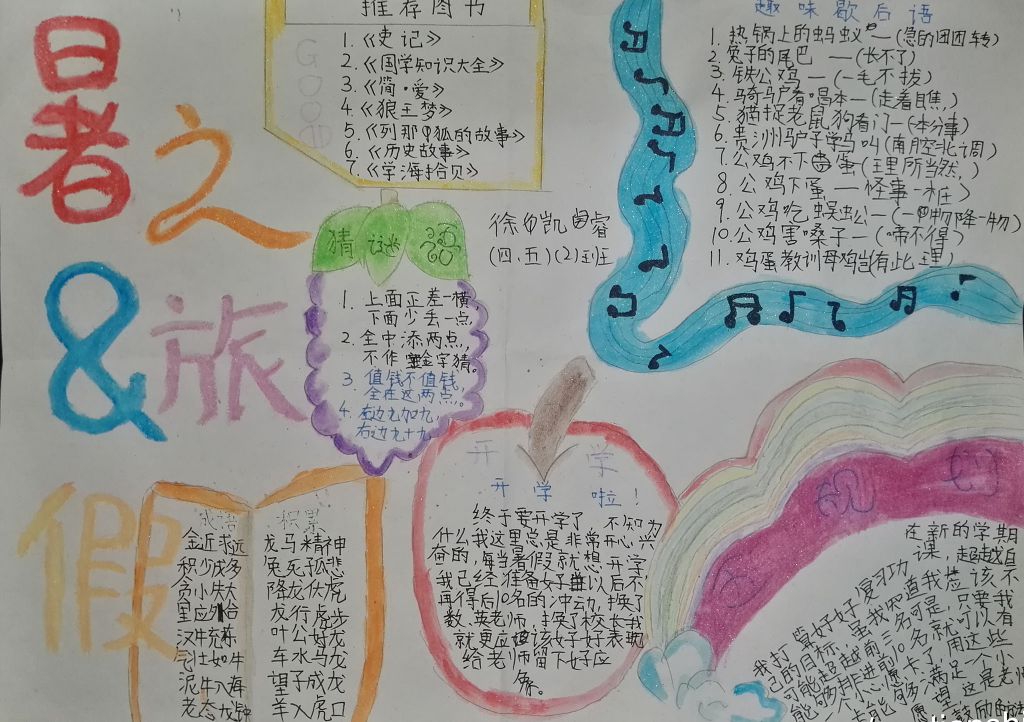 暑之
&旅
假
推荐图书
1.《史记》
2.《国学知识大全》
3.《简·爱》
4.《狼王梦》
5.《列那狐的故事》
6.《历史故事》
7.《学海拾贝》
趣味歇后语
1. 热锅上的蚂蚁—(急的团团转)
2. 兔子的尾巴 —(长不了)
3. 铁公鸡—(一毛不拔)
4. 骑马看唱本—(走着瞧)
5. 猫捉老鼠狗看门—(本分事)
6. 贵州驴子学马叫(南腔北调)
7. 公鸡不下蛋(理所当然)
8. 公鸡下蛋—怪事一桩)
9. 公鸡吃蜈蚣—(一物降一物)
10. 公鸡害嗓子—(啼不得)
11. 鸡蛋教训母鸡岂有此理)
徐 凯 睿
(四、五)(2)班
猜谜
1. 上面正差一横,
下面少丢一点,
2. 全中添两点,
不作金字猜。
3 值钱不值钱,
全在这两点。
4. 左边九加九,
右边九十九
开 学
开学啦!
终于要开学了 不知为
什么,我这里总是非常开心,兴
奋的,每当暑假就想开学,
我已经准备好难以后不
再得后10名的冲动,换了
数、英老师,换了校长我
就更应该好好表现
给老师留下好应
象。
成语 积累
金近求远
积少成多
贪小失大
里应外合
汉牛充栋
气壮如牛
泥牛入海
老态龙钟
龙马精神
兔死狐悲
降龙伏虎
龙行虎步
叶公好龙
车水马龙
望子成龙
羊入虎口
规划
在新的学期
我打算好好复习功课,超越自
己的目标,虽我知道我应该不
可能超越前三名可是,只要我
能够排进前10名就可以有
心愿卡了,用这些
能够满足一个小
愿望,这是老师